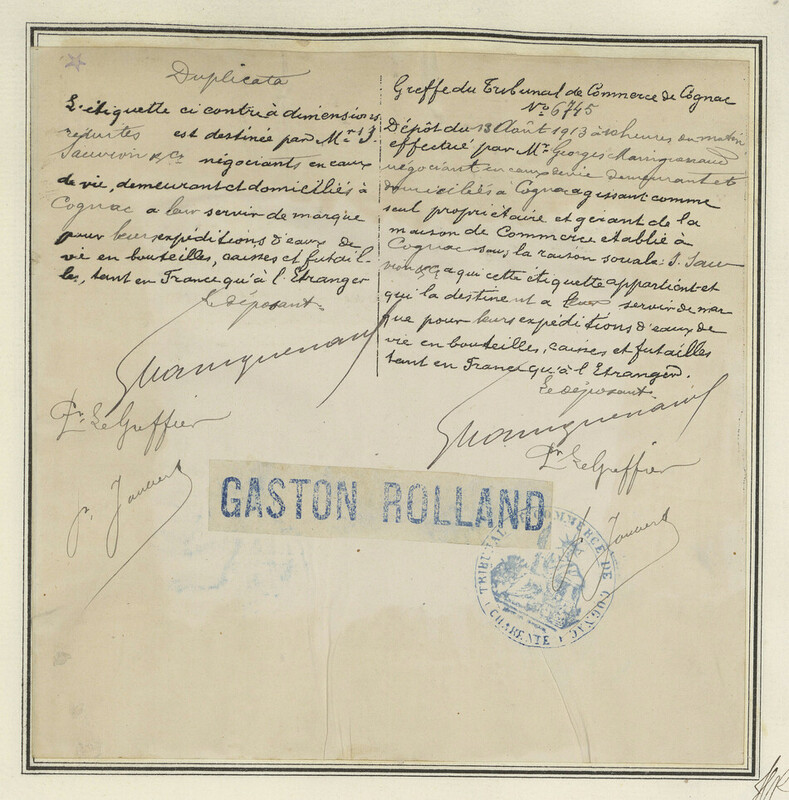 Duplicata
L'étiquette ci contre à dimensions
réduites est destinée par Mr J.
Sauvion & Cie négociants en eaux
de vie, demeurant et domiciliés à
Cognac a leur servir de marque
pour leurs expéditions d'eaux de
vie en bouteilles, caisses et futail-
les, tant en France qu'à l'Etranger
Le déposant
Pr Le Greffier
Greffe du Tribunal de Commerce de Cognac
No 6745
Dépôt du 13 Août 1913 à 10 heures du matin
effectué par Mr Georges Mainguenaud
négociant en eaux de vie demeurant et
domiciliés à Cognac agissant comme
seul propriétaire et gérant de la
maison de Commerce établie à
Cognac sous la raison sociale: J. Sau
vion & Cie a qui cette étiquette appartient et
qui la destinent a leur servir de mar
que pour leurs expéditions d'eaux de
vie en bouteilles, caisses et futailles
tant en France qu'à l'Etranger.
Le déposant
Pr Le Greffier
GASTON ROLLAND
TRIBUNAL DE COMMERCE DE COGNAC
(CHARENTE)